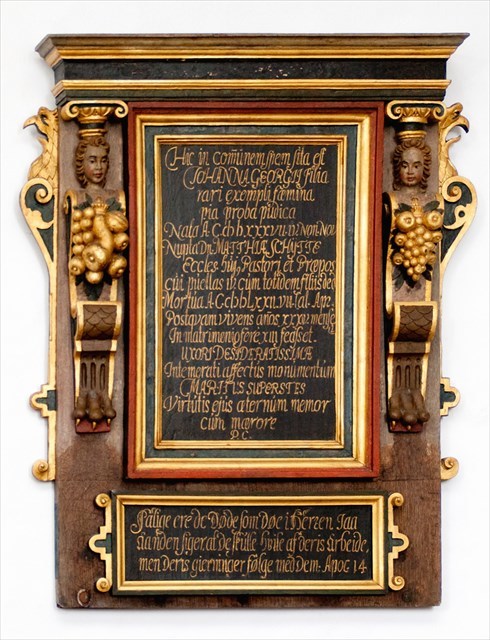 Hic in com̄unem spem sita est
JOHANNA GEORGII filia
rari exempli fœmina
pia proba pudica
Nata A. C.
Nupta Dn. MATTHIÆ SCHYTTE
Eccles. huj. Pastori et Præpos
cui puellas in cum totidem filiis ded
Mortua A. C. Cal. Apr.
Postquam vivens años xxxv. menses
In matrimonio fere xiij fecisset.
UXORI DESIDERATISSIMÆ
Intemerati affectus monumentum
MARITUS SUPERSTES
Virtutis ejus æternum memor
cum mœrore
P. C.
Salige ere de Døde som døe i Herren Jaa
Aanden siger at de skulle hvile af deris Arbeide,
men deris gierninger følge med dem. Apoc 14